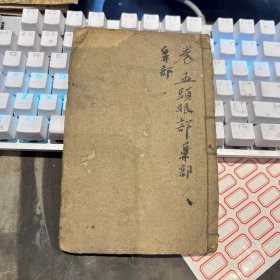 卷五頭眼部鼻部、
鼻部、